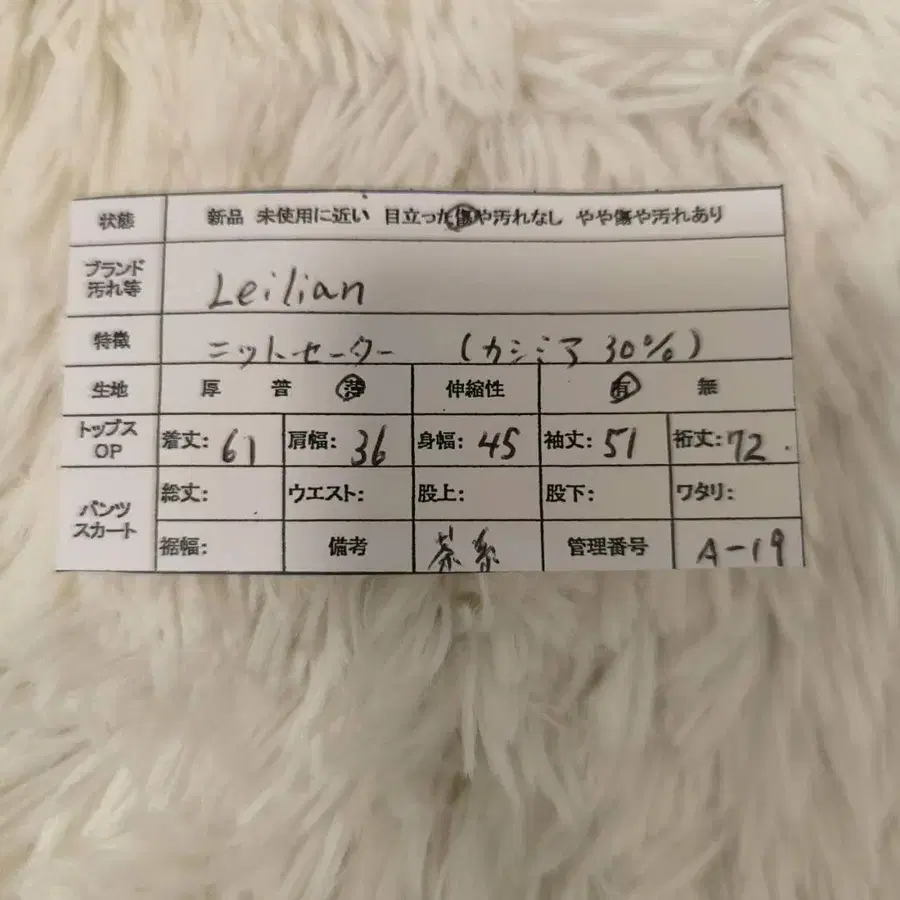 状態 新品 未使用に近い 目立った傷や汚れなし やや傷や汚れあり
ブランド
汚れ等
Leilian
特徴 ニットセーター (カシミア 30%)
生地 厚 普 薄 伸縮性 有 無
トップス
OP
着丈: 61 肩幅: 36 身幅: 45 袖丈: 51 裄丈: 72
パンツ
スカート
総丈: ウエスト: 股上: 股下: ワタリ:
裾幅: 備考 茶系 管理番号 A-19